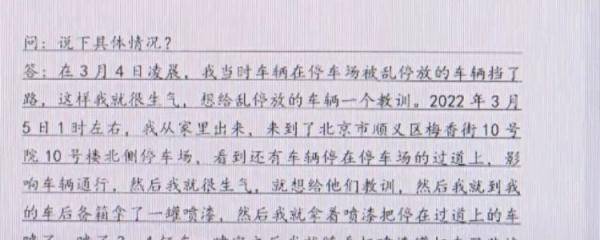 问: 说下具体情况?
答: 在 3 月 4 日凌晨, 我当时车辆在停车场被乱停放的车辆挡了
路, 这样我就很生气, 想给乱停放的车辆一个教训。2022 年 3 月
5 日 1 时左右, 我从家里出来, 来到了北京市顺义区梅香街 10 号
院 10 号楼北侧停车场, 看到还有车辆停在停车场的过道上, 影
响车辆通行, 然后我就很生气, 就想给他们教训, 然后我就到我
的车后备箱拿了一罐喷漆, 然后我就拿着喷漆把停在过道上的车